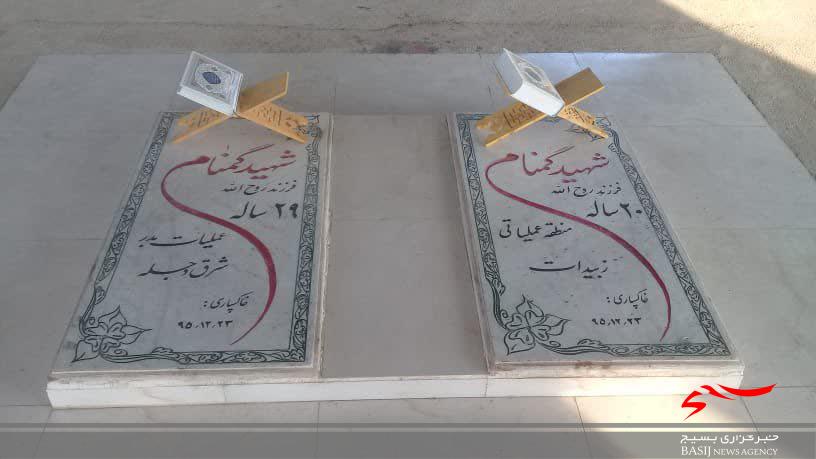 شهید گمنام
فرزند روح الله
۲۹ ساله
عملیات بدر
شرق دجله
خاکسپاری:
۹۵.۱۲.۲۳
شهید گمنام
فرزند روح الله
۲۰ ساله
منطقه عملیاتی
زبیدات
خاکسپاری:
۹۵.۱۲.۲۳
خبرگزاری بسیج
BASIJ NEWS AGENCY